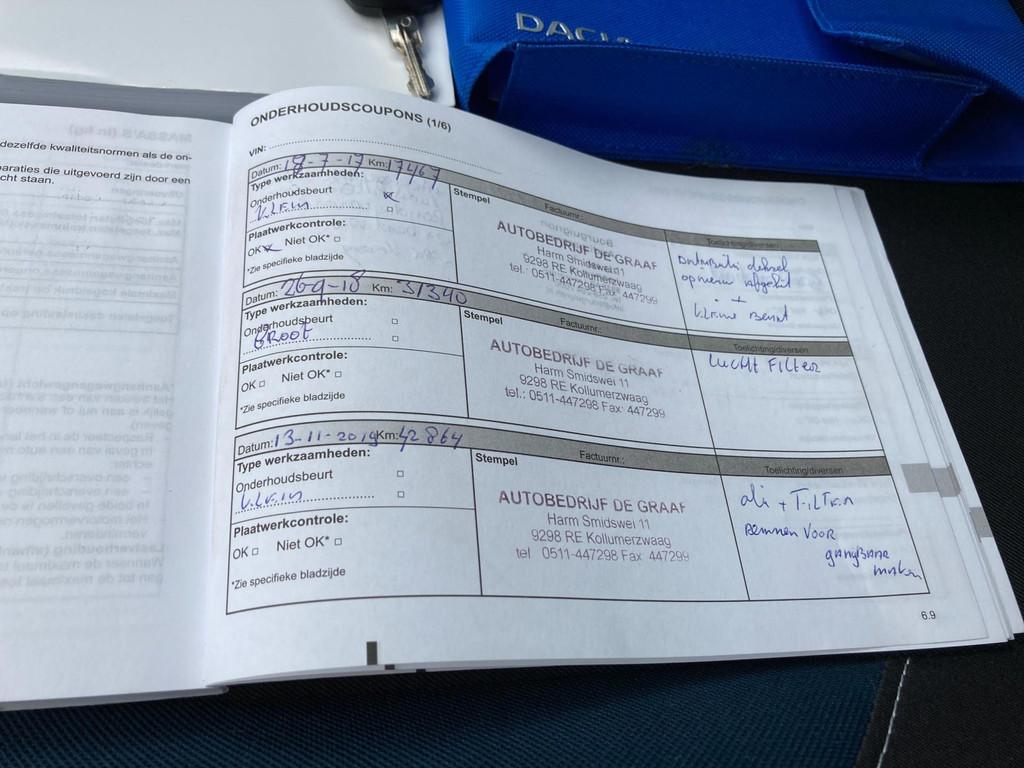 DACIA
dezelfde kwaliteitsnormen als de on-
paraties die uitgevoerd zijn door een
cht staan.
MASSA'S (in kg)
ONDERHOUDSCOUPONS (1/6)
VIN:
Datum: 18-7-17 Km: 17467
Type werkzaamheden:
Onderhoudsbeurt
KLEIN
Plaatwerkcontrole:
OK Niet OK*
*Zie specifieke bladzijde
Stempel
Factuurnr.:
AUTOBEDRIJF DE GRAAF
Harm Smidswei 11
9298 RE Kollumerzwaag
tel.: 0511-447298 Fax 447299
Toelichting/diversen
deksel
opnieuw afgekit
+
kleine Beurt
Datum: 26-9-18 Km: 31340
Type werkzaamheden:
Onderhoudsbeurt
GROOT
Plaatwerkcontrole:
OK Niet OK*
*Zie specifieke bladzijde
Stempel
Factuurnr.:
AUTOBEDRIJF DE GRAAF
Harm Smidswei 11
9298 RE Kollumerzwaag
tel.: 0511-447298 Fax 447299
Toelichting/diversen
Lucht Filter
Datum: 13-11-2019 Km: 42864
Type werkzaamheden:
Onderhoudsbeurt
KLEIN
Plaatwerkcontrole:
OK Niet OK*
*Zie specifieke bladzijde
Stempel
Factuurnr.:
AUTOBEDRIJF DE GRAAF
Harm Smidswei 11
9298 RE Kollumerzwaag
tel. 0511-447298 Fax 447299
Toelichting/diversen
oli + FILTER
Remmen VOOR
gangBaar
maken
6.9